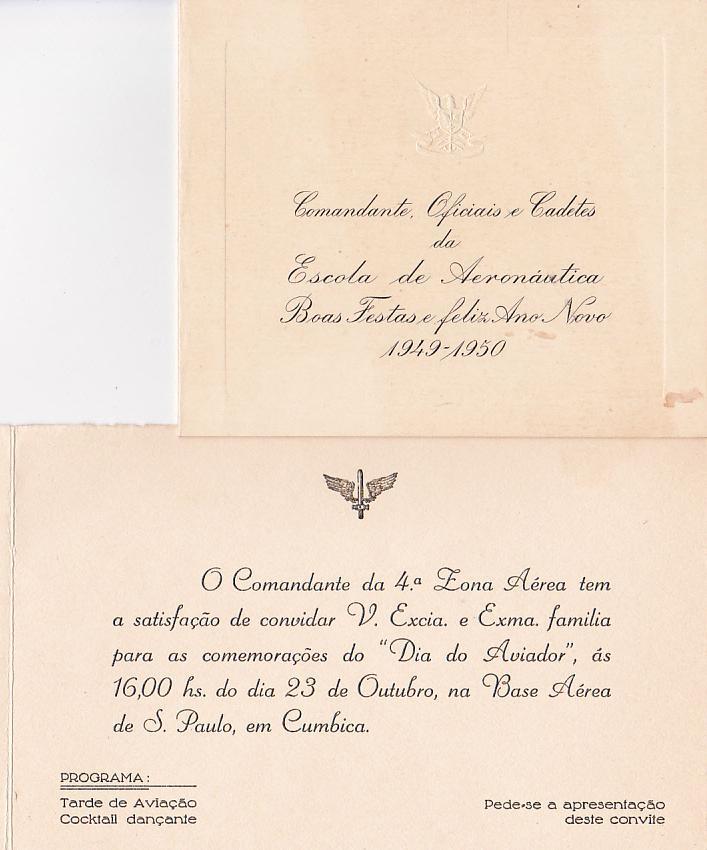 Comandante, Oficiais e Cadetes
da
Escola de Aeronáutica
Boas Festas e feliz Ano Novo
1949-1950
O Comandante da 4.ª Zona Aérea tem
a satisfação de convidar V. Excia. e Exma. familia
para as comemorações do "Dia do Aviador", ás
16,00 hs. do dia 23 de Outubro, na Base Aérea
de S. Paulo, em Cumbica.
PROGRAMA:
Tarde de Aviação
Cocktail dançante
Pede-se a apresentação
deste convite